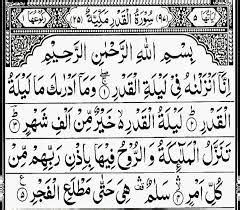 اٰيَاتُهَا ٥ (٩٧) سُوْرَةُ الْقَدْرِ مَكِّيَّةٌ (٢٥) رُكُوْعُهَا ١
بِسْمِ اللّٰهِ الرَّحْمٰنِ الرَّحِيْمِ
اِنَّاۤ اَنْزَلْنٰهُ فِيْ لَيْلَةِ الْقَدْرِ ١ وَمَاۤ اَدْرٰىكَ مَا لَيْلَةُ
الْقَدْرِ ٢ لَيْلَةُ الْقَدْرِ خَيْرٌ مِّنْ اَلْفِ شَهْرٍ ٣
تَنَزَّلُ الْمَلٰٓئِكَةُ وَالرُّوْحُ فِيْهَا بِاِذْنِ رَبِّهِمْ مِّنْ
كُلِّ اَمْرٍ ٤ سَلٰمٌ هِيَ حَتّٰى مَطْلَعِ الْفَجْرِ ٥